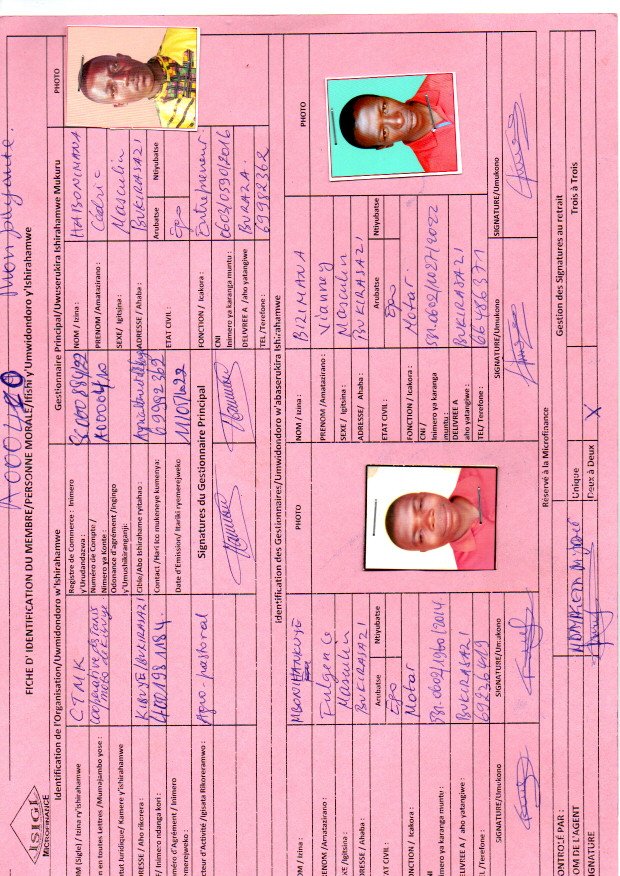 A000440
Mon payante.
ISIGI
MICROFINANCE
FICHE D' IDENTIFICATION DU MEMBRE/PERSONNE MORALE/Ifishi y'Umwidondoro y'Ishirahamwe
Identification de l'Organisation/Uwmidondoro w'Ishirahamwe
OM (Sigle) / Izina ry'ishirahamwe
C.T.M.K
n en toutes Lettres /Mumajambo yose :
Cooperative des Taxis
moto de Kibuye
atut Juridique/ Kamere y'ishirahamwe
RESSE / Aho rikorera :
KIBUYE/BUKIRASAZI
F/ Inimero ndanga kori :
4001981184
méro d'Agrément / Inimero
emerejweko :
cteur d'Activité /Igisata Bikoreramwo :
Agro-pastoral
Registre de Commerce : Inimero
y'Urudandazwa :
Numéro de Compte /
Nimero ya Konte :
A000440
Odonance d'agrément /Ingingo
y'Umushikiranganji:
Cible/Abo Ishirahamwe ryitaho :
Contact /Hari ico mukeneye kumenya:
69982362
Date d'Emission/ Itariki ryemerejweko
11/07/2022
Signatures du Gestionnaire Principal
Gestionnaire Principal/Uwuserukira Ishirahamwe Mukuru
PHOTO
NOM / Izina :
HABONIMANA
PRENOM /Amatazirano :
Cédric
SEXE/ Igitsina :
Masculin
ADRESSE / Ahaba :
BUKIRASAZI
ETAT CIVIL :
Arubatse
Ntiyubatse
Epo
FONCTION / Icakora :
Entrepreneur
CNI
Inimero ya karanga muntu :
0603/0590/2016
DELIVREE A /aho yatangiwe
BURAZA
TEL /Terefone :
69982362
Identification des Gestionnaires/Umwidondoro w'abaserukira Ishirahamwe
OM / Izina :
MBONIHANKUYE
PHOTO
RENOM/Amatazirano :
Fulgence
XE /Igitsina :
Masculin
RESSE / Ahaba :
BUKIRASAZI
TAT CIVIL :
Arubatse
Ntiyubatse
Epo
ONCTION / Icakora :
Motar
NI /
imero ya karanga muntu :
531-0602/1960/2014
ELIVREE A / aho yatangiwe :
BUKIRASAZI
L /Terefone :
69836469
SIGNATURE/Umukono
SIGNATURE/Umukono
NOM / Izina :
BIZIMANA
PHOTO
PRENOM /Amatazirano :
Vianney
SEXE / Igitsina :
Masculin
ADRESSE/ Ahaba :
BUKIRASAZI
ETAT CIVIL :
Arubatse
Ntiyubatse
Epo
FONCTION / Icakora :
Motar
CNI /
Inimero ya karanga
muntu :
531-0602/1027/2022
DELIVREE A
aho yatangiwe :
BUKIRASAZI
TEL/ Terefone :
66466371
SIGNATURE/Umukono
SIGNATURE/Umukono
Réservé à la Microfinance
ONTROLÉ PAR :
OM DE L'AGENT
SIGNATURE
Gestion des Signatures au retrait
Unique
Deux à Deux
X
Trois à Trois